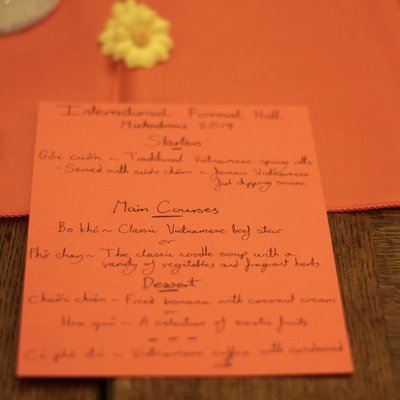 International Formal Hall
Michaelmas 2014
Starters
Gỏi cuốn ~ Traditional Vietnamese spring rolls
- Served with nước chấm ~ famous Vietnamese
fish dipping sauce
Main Courses
Bo kho ~ Classic Vietnamese beef stew
or
Phở chay ~ The classic noodle soup with a
variety of vegetables and fragrant herbs
Dessert
Chuối chiên ~ Fried banana with coconut cream
or
Hoa quả ~ A selection of exotic fruits
~ ~ ~
Cà phê đá ~ Vietnamese coffee with condensed
milk